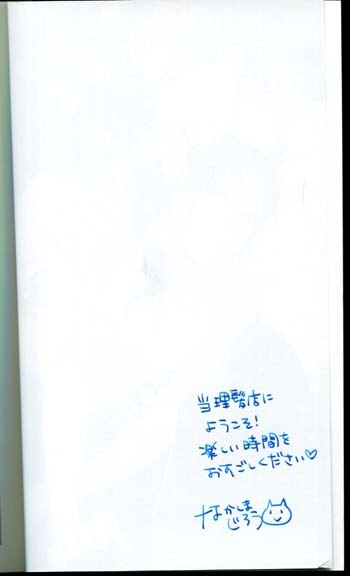 当理髪店に
ようこそ!
楽しい時間を
おすごしください♡
なかしま
じろう